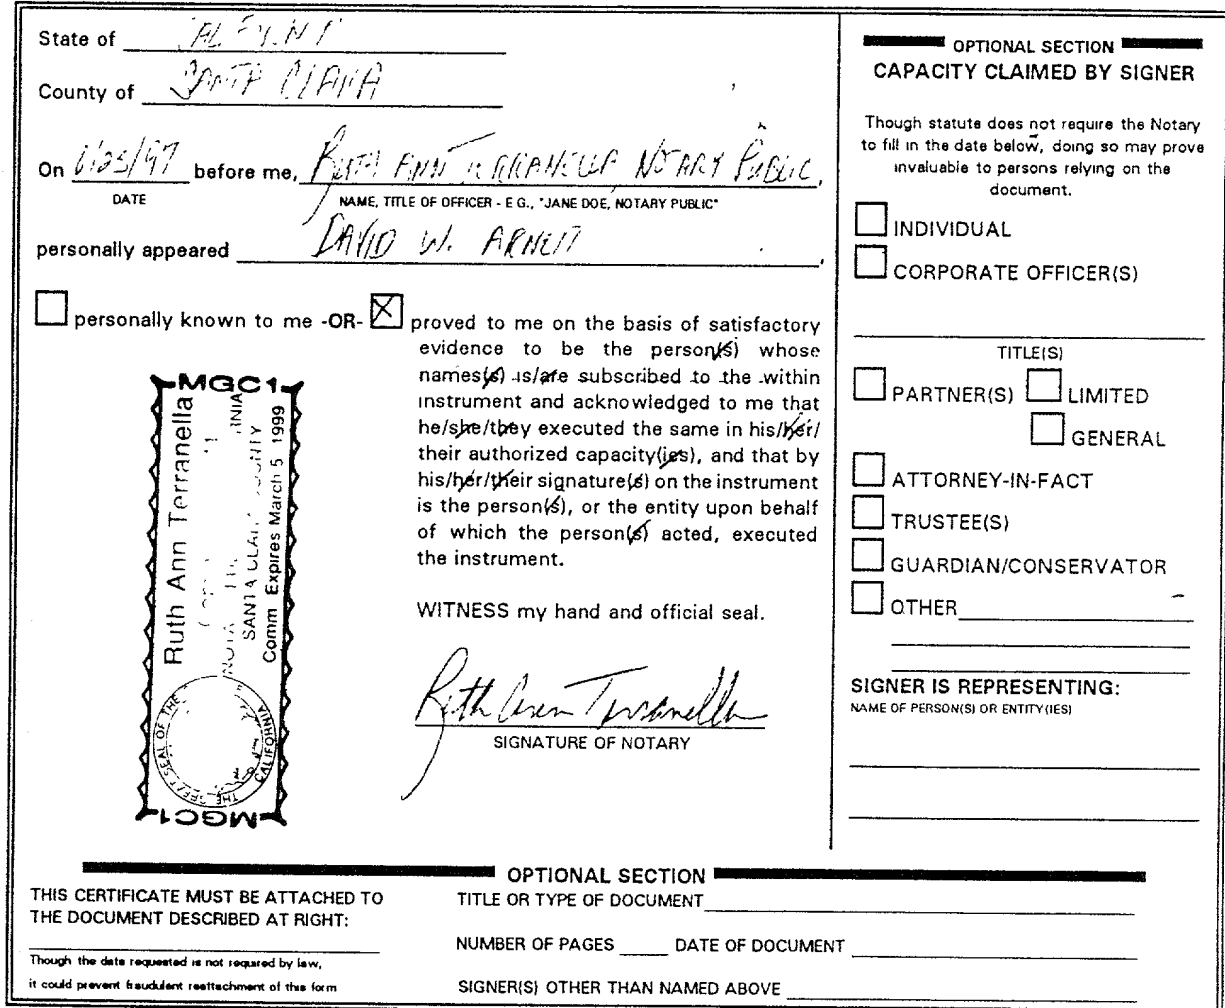 State of
County of SANTA CLARA
On /25/97 before me, RUTH ANN TERRANELLA NOTARY PUBLIC,
DATE
NAME, TITLE OF OFFICER - E G., "JANE DOE, NOTARY PUBLIC"
personally appeared DAVID W. ARNETT,
personally known to me -OR- proved to me on the basis of satisfactory
evidence to be the person(s) whose
names(s) is/are subscribed to the within
instrument and acknowledged to me that
he/she/they executed the same in his/her/
their authorized capacity(ies), and that by
his/her/their signature(s) on the instrument
is the person(s), or the entity upon behalf
of which the person(s) acted, executed
the instrument.
WITNESS my hand and official seal.
Ruth Ann Terranella
SIGNATURE OF NOTARY
MGC1
Ruth Ann Terranella
SANTA CLARA COUNTY
Comm Expires March 5 1999
THE GREAT SEAL OF THE
CALIFORNIA
MGC1
OPTIONAL SECTION
CAPACITY CLAIMED BY SIGNER
Though statute does not require the Notary
to fill in the date below, doing so may prove
invaluable to persons relying on the
document.
INDIVIDUAL
CORPORATE OFFICER(S)
TITLE(S)
PARTNER(S) LIMITED
GENERAL
ATTORNEY-IN-FACT
TRUSTEE(S)
GUARDIAN/CONSERVATOR
OTHER
SIGNER IS REPRESENTING:
NAME OF PERSON(S) OR ENTITY(IES)
OPTIONAL SECTION
THIS CERTIFICATE MUST BE ATTACHED TO
THE DOCUMENT DESCRIBED AT RIGHT:
Though the data requested is not required by law,
it could prevent fraudulent reattachment of this form
TITLE OR TYPE OF DOCUMENT
NUMBER OF PAGES DATE OF DOCUMENT
SIGNER(S) OTHER THAN NAMED ABOVE